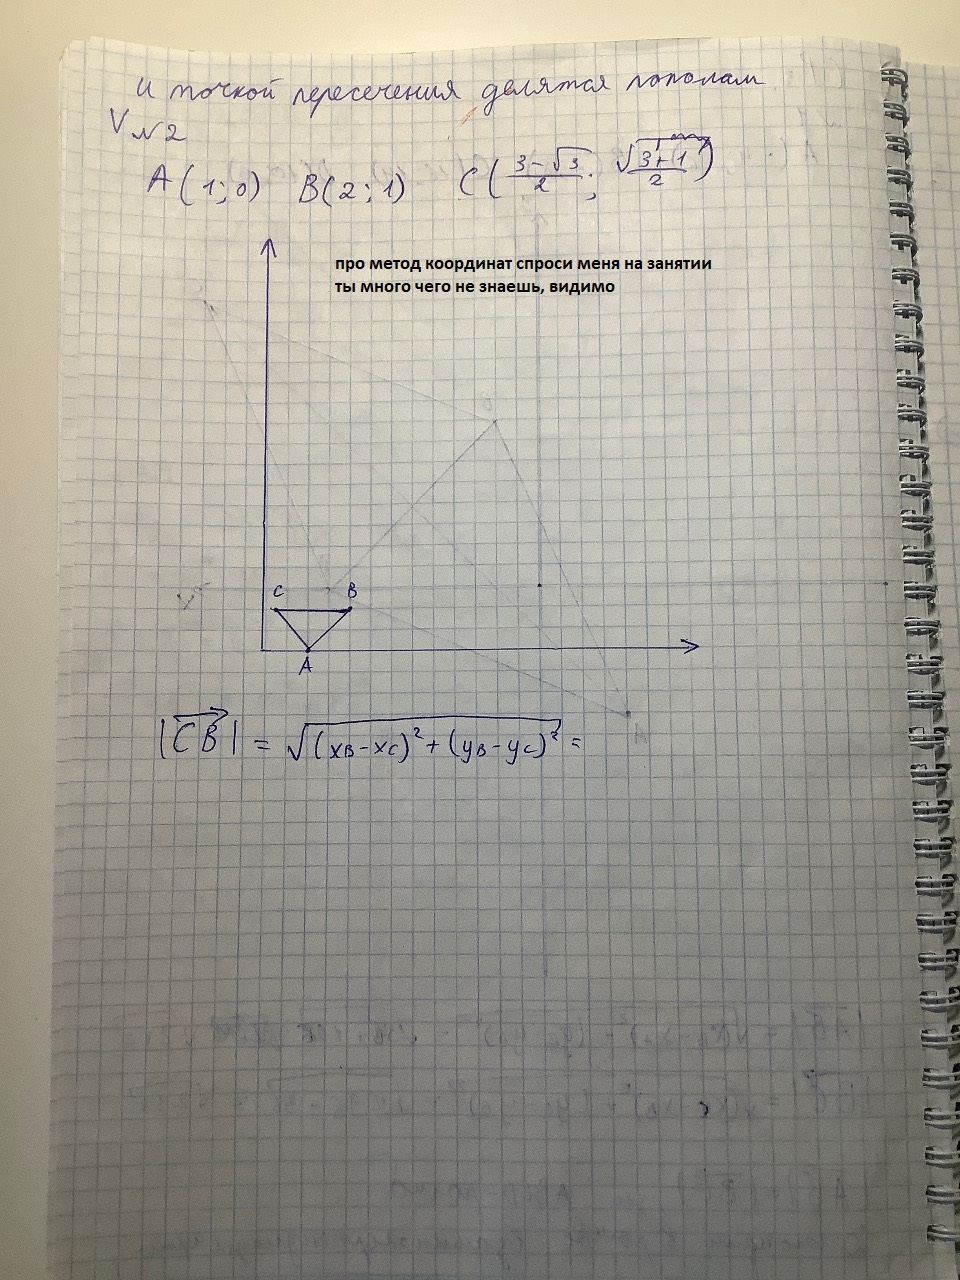 и точкой пересечения делятся пополам
V №2
A(1;0) B(2;1) C(3-√3/2; √3+1/2)
про метод координат спроси меня на занятии
ты много чего не знаешь, видимо
C B
A
|CB| = √(xв-xс)²+(yв-yс)² =